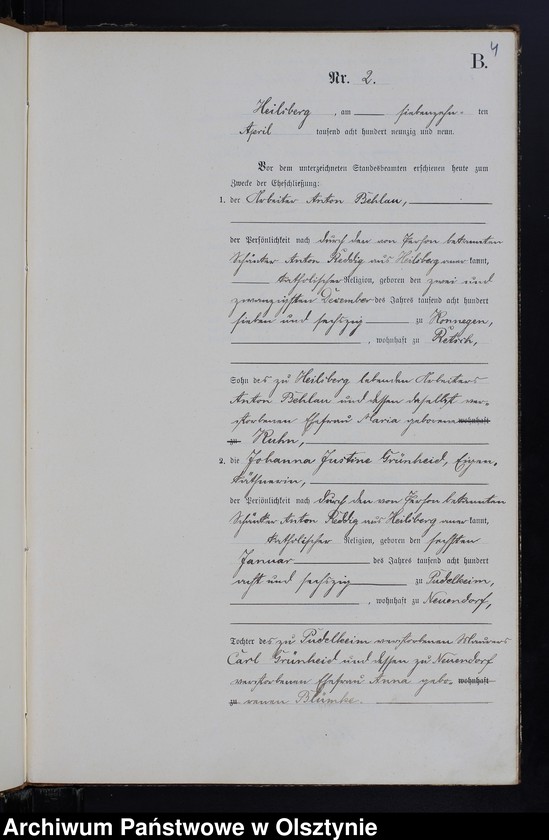 4
B.
Nr. 2.
Heilsberg, am siebenzehn ten
April tausend acht hundert neunzig und neun.
Vor dem unterzeichneten Standesbeamten erschienen heute zum
Zwecke der Eheschließung:
1. der Arbeiter Anton Behlau,
der Persönlichkeit nach durch den von Person bekannten
Schänker Anton Reddig aus Heilsberg aner kannt,
katholischer Religion, geboren den zwei und
zwanzigsten Dezember des Jahres tausend acht hundert
sieben und sechszig zu Konnegen,
, wohnhaft zu Retsch,
Sohn des zu Heilsberg lebenden Arbeiters
Anton Behlau und dessen daselbst ver-
storbenen Ehefrau Maria geborene wohnhaft
zu Kuhn,
2. die Johanna Justine Grünheid, Eigen-
käthnerin,
der Persönlichkeit nach durch den von Person bekannten
Schänker Anton Reddig aus Heilsberg aner kannt,
katholischer Religion, geboren den sechsten
Januar des Jahres tausend acht hundert
acht und sechszig zu Pudelkeim,
, wohnhaft zu Neuendorf,
Tochter des zu Pudelkeim verstorbenen Maurers
Carl Grünheid und dessen zu Neuendorf
verstorbenen Ehefrau Anna gebo- wohnhaft
zu renen Blümke.
Archiwum Państwowe w Olsztynie